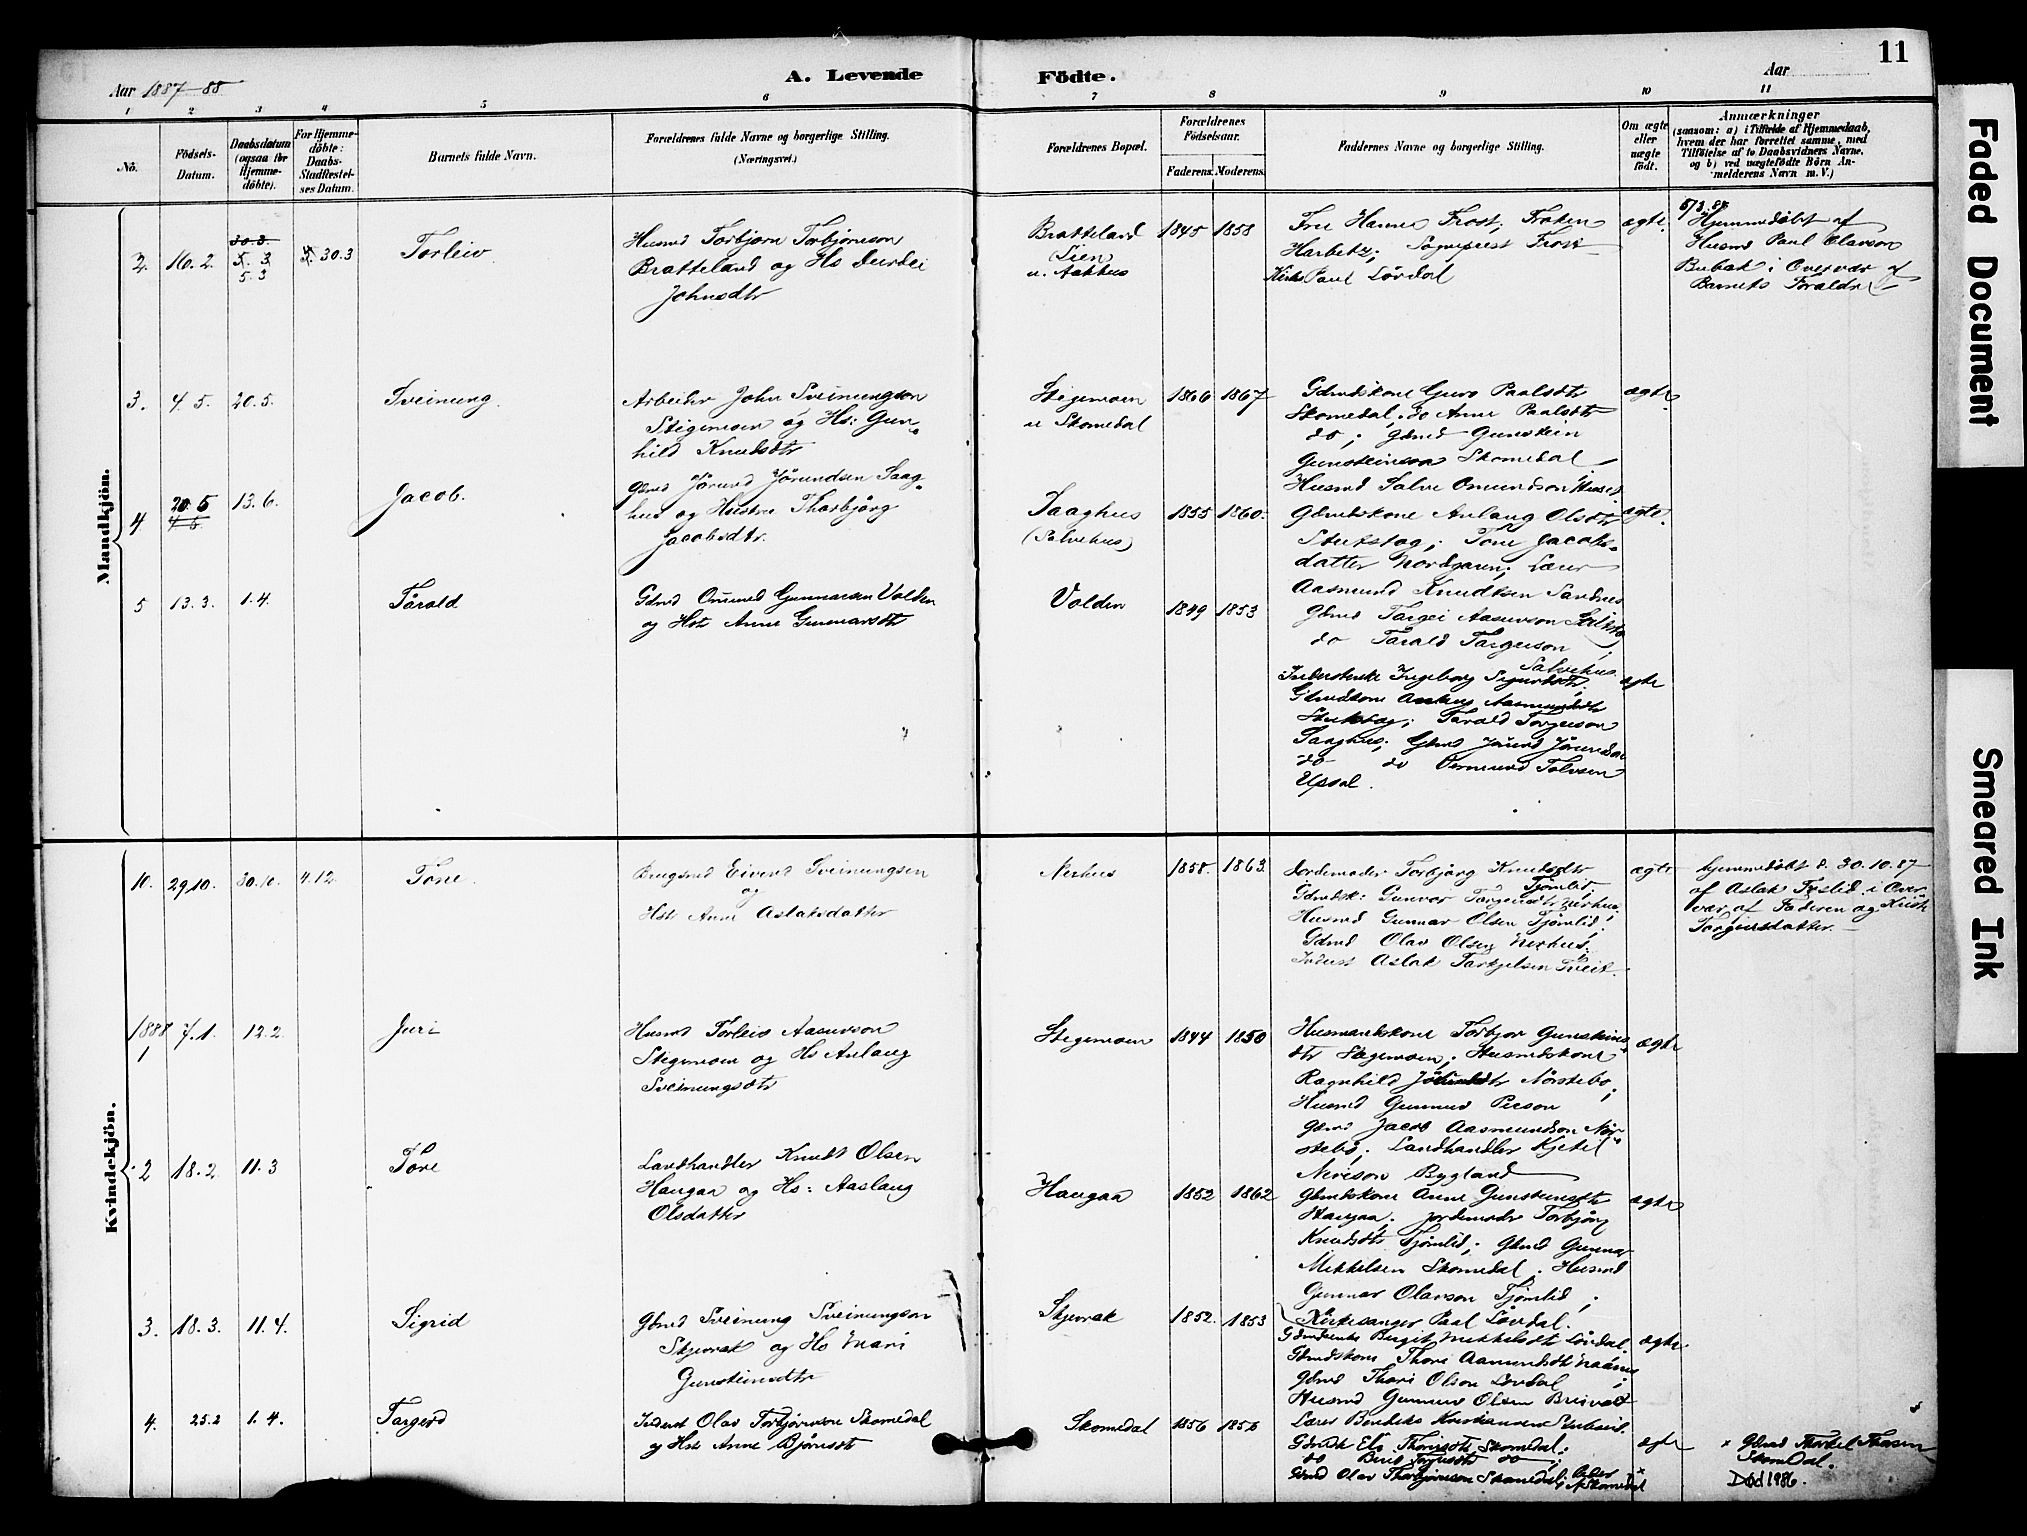 11
Aar 1887-88
A. Levende Födte.
Aar
1 2 3 4 5 6 7 8 9 10 11
No.
Födsels-Datum.
Daabsdatum (ogsaa for Hjemme-döbte).
For Hjemme-döbte: Daabs-Stadfæstel-ses Datum.
Barnets fulde Navn.
Forældrenes fulde Navne og borgerlige Stilling.
(Næringsvei.)
Forældrenes Bopæl.
Forældrenes Födselsaar.
Faderens. Moderens.
Faddernes Navne og borgerlige Stilling.
Om ægte eller uægte födt.
Anmærkninger
(saasom: a) i Tilfælde af Hjemmedaab,
hvem der har forrettet samme, med
Tilföielse af to Daabsvidners Navne,
og b) ved uægtefödte Börn An-
melderens Navn m. V.)
Mandkjön.
2. 16.2. 30.3. 5.3 5.3 30.3 Torleiv
Husmd Torbjørn Torbjørnson
Bratteland og Hs
Johnsdtr
Bratteland
Lien
u. Aakhus
1845 1858
Fru Hanna Frost; Frøken
Harbetz; Sogneprest Frost
Paul Lövdal
ægte.
Hjemmedöbt af
Husmd Paul Olavson
i Overvær af
Barnets Forældre
3. 4.5. 20.5. Sveinung.
Arbeider John Sveinungson
Stigemoen og Hs: Gun-
hild Knudsdtr
Stigemoen
u Skomedal
1866 1867
Gdmdskone Guro Paalsdtr
Skomedal; do Anne Paalsdtr
do; Gdmd Gunstein
Gunsteinson Skomedal
Husmd Salve Omundson
ægte.
4 20.5 4.5 13.6. Jacob.
Gdmd Jörund Jörundsen Saag-
hus og Hustru Thorbjörg
Jacobsdtr.
Saaghus
(Salvehus)
1855 1860.
Gdmdskone Anlaug Olsdtr
Stutstög; Tone Jacobs-
datter Nordgaren; Lærer
Aasmund Knudtsen Sandnes
Gdmd Targei Aasuvson
do Tarald Targeison
Salvehus.
ægte.
5 13.3. 1.4. Tarald
Gdmd Omund Gunnarsen Valden
og Hst Anne Gunnarsdtr
Valden
1849 1853
Inderstenke Ingeborg Sigurdsdtr.
Gdmdkone Aslaug Aasmundsdtr
Stutstög; Tarald Torgeison
Saaghus; Gdmd Jörund Jörundson
do do Ommund Tolvsen
Upsal.
ægte
Kvindekjön.
10. 29.10. 30.10. 4.12. Tone.
Brugsmd Eivind Sveinungsen
og
Hst Anne Aslaksdatter
Nerhus
1858. 1863.
Jordemoder Torbjörg Knudsdtr
Tjömlid;
Gdmdsk: Gunvor Targeisdtr Nerhus;
Husmd Gunnar Olsen Tjömlid;
Gdmd Olav Olsen Nerhus;
Inderst Aslak Tarkjelsen Tveit.
ægte
hjemmedöbt d. 30.10.87
af Aslak i Over-
vær af Faderen og
Torgeirsdatter.
1888
1 7.1. 12.2. Juri
Husmd Torleiv Aasuvson
Stigemoen og Hs Anlaug
Sveinungsdtr
Stigemoen
1844 1850
Husmandskone Torbjor Gunsteins-
dtr Stigemoen; Husmdskone
Ragnhild Nörstebö;
Husmd Gunmund Person
Gdmd Jacob Aasmundson Nör-
stebö; Landhandler Kjetil
Neresen Bygland
ægte
2 18.2. 11.3 Tone
Landhandler Knudt Olsen
Haugaa og Hs: Aaslaug
Olsdatter
Haugaa
1852 1862
Gdmdskone Anne Gunsteinsdtr
Haugaa; Jordemoder Torbjörg
Knudsdtr Tjömlid; Gdmd Gunnar
Mikkelsen Skomedal. Husmd
Gunnar Olavson Tjömlid;
Kirkesanger Paal Lövdal.
ægte
3. 18.3. 11.4. Sigrid
Gdmd Sveinung Sveinungson
Skjevrak og Hs Mari
Gunsteinsdtr
Skjevrak
1852. 1853
Gdmdsenke Birgit Mikkelsdtr Lövdal.
Gdmdskone Thore Aamundsdtr
Gdmd Thore Olson Lövdal;
Husmd Gunnuv Olsen
Lærer Bendiks Kristiansen Stubseid.
ægte
4. 25.2 1.4. Targerd
Inderst Olav Torbjörnson Skomedal
og Hst Anne Björnsdtr
Skomedal
1856 1856
Skomedal;
do Berit do;
Gdmd Olav Thorbjörnsen Skomedal;
ægte
× Gdmd Thorkel
Skomdal.
Död 1986.
Faded Document
Smeared Ink